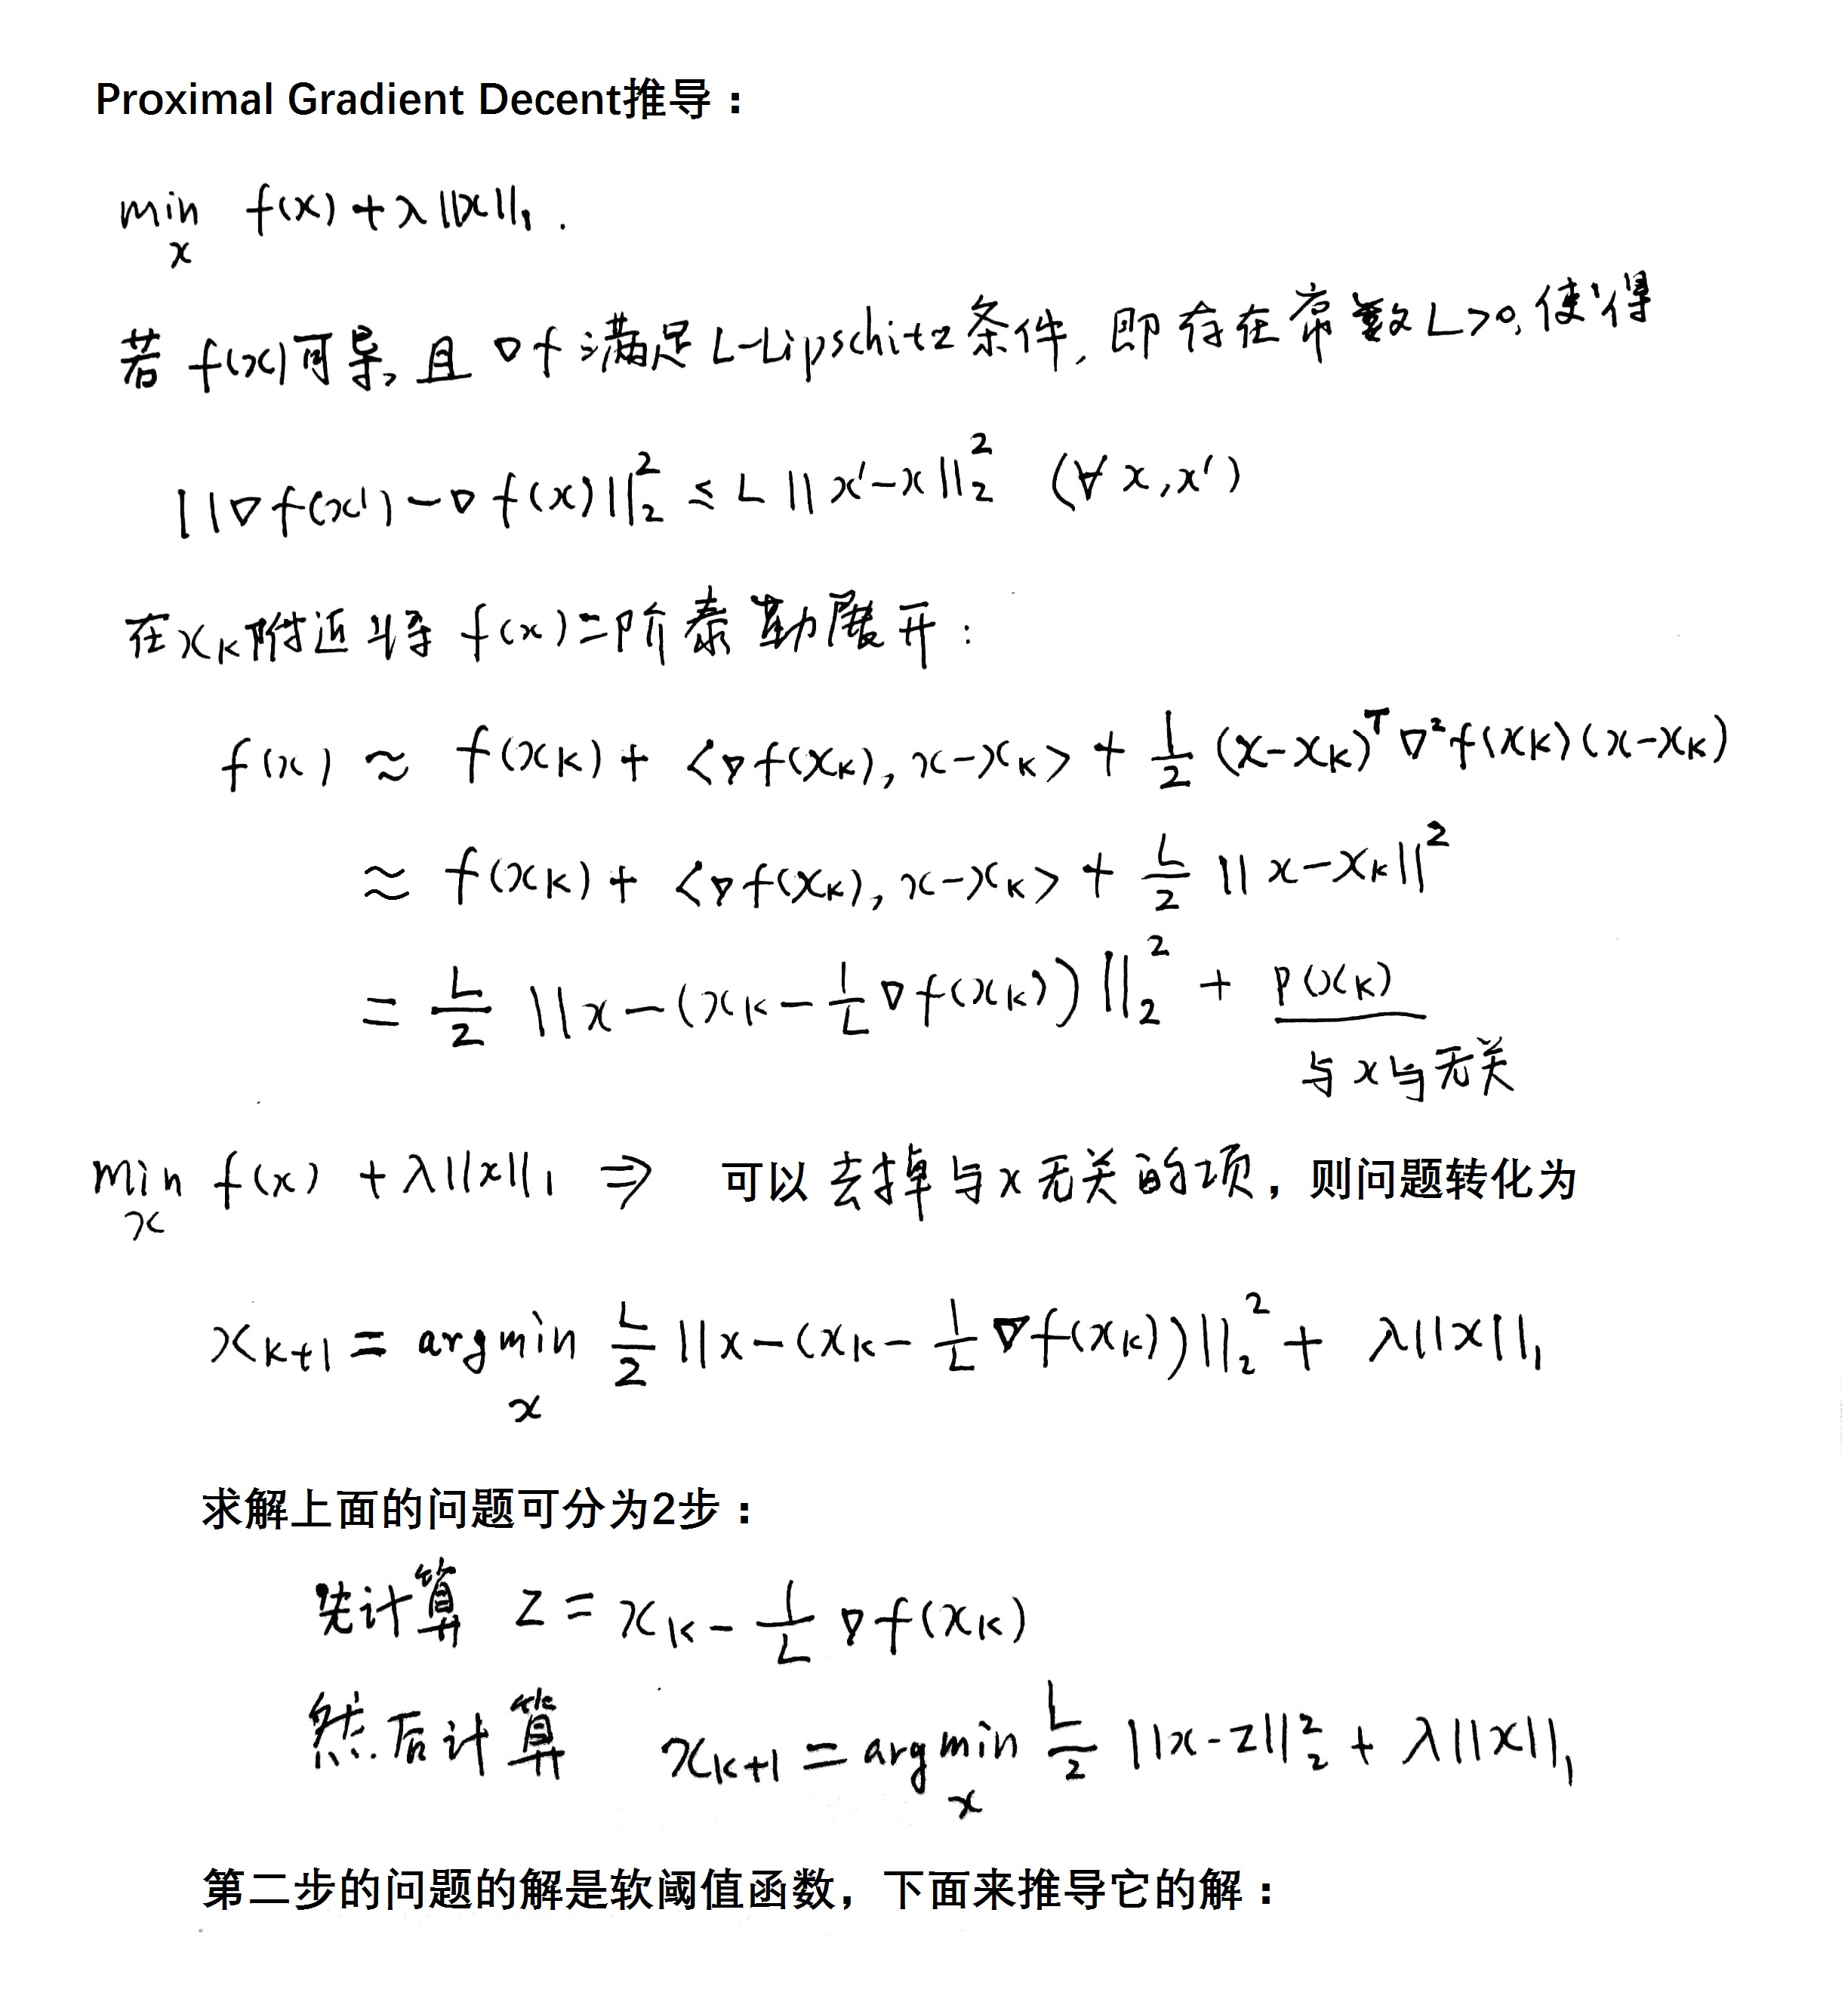 Proximal Gradient Decent推导：
min f(x) + λ||x||₁ .
x
若 f(x)可导, 且 ∇f 满足 L-Lipschitz 条件, 即存在常数 L>0, 使得
||∇f(x') − ∇f(x)||₂² ≤ L ||x'−x||₂² (∀ x, x')
在 xₖ 附近将 f(x) 二阶泰勒展开：
f(x) ≈ f(xₖ) + <∇f(xₖ), x−xₖ> + 1/2 (x−xₖ)ᵀ ∇²f(xₖ)(x−xₖ)
≈ f(xₖ) + <∇f(xₖ), x−xₖ> + L/2 ||x−xₖ||²
= L/2 ||x−(xₖ − 1/L ∇f(xₖ))||₂² + P(xₖ)
与x与无关
min f(x) + λ||x||₁ ⇒ 可以去掉与x无关的项，则问题转化为
x
xₖ₊₁ = argmin L/2 ||x−(xₖ − 1/L ∇f(xₖ))||₂² + λ||x||₁
x
求解上面的问题可分为2步：
先计算 z = xₖ − 1/L ∇f(xₖ)
然后计算 xₖ₊₁ = argmin L/2 ||x−z||₂² + λ||x||₁
x
第二步的问题的解是软阈值函数，下面来推导它的解：